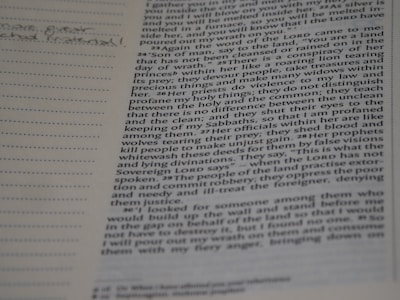 I gather you in my
you inside the city and melt
you and I will
melted in a furnace, so you will be melted in-
side her, and you will know that I the LORD have
poured out my wrath on you.'"
23 Again the word of the LORD came to me:
24 "Son of man, say to the land, 'You are a land
that has not been cleansed or rained on in the
day of wrath.' 25 There is a conspiracy of her
princes within her like a roaring lion tearing
its prey; they devour people, take treasures and
precious things and make many widows within
her. 26 Her priests do violence to my law and
profane my holy things; they do not distinguish
between the holy and the common; they teach
that there is no difference between the unclean
and the clean; and they shut their eyes to the
keeping of my Sabbaths, so that I am profaned
among them. 27 Her officials within her are like
wolves tearing their prey; they shed blood and
kill people to make unjust gain. 28 Her prophets
whitewash these deeds for them by false visions
and lying divinations. They say, 'This is what the
Sovereign LORD says' – when the LORD has not
spoken. 29 The people of the land practise extor-
tion and commit robbery; they oppress the poor
and needy and ill-treat the foreigner, denying
them justice.
30 "I looked for someone among them who
would build up the wall and stand before me
in the gap on behalf of the land so that I would
not have to destroy it, but I found no one. 31 So
I will pour out my wrath on them and consume
them with my fiery anger, bringing down on